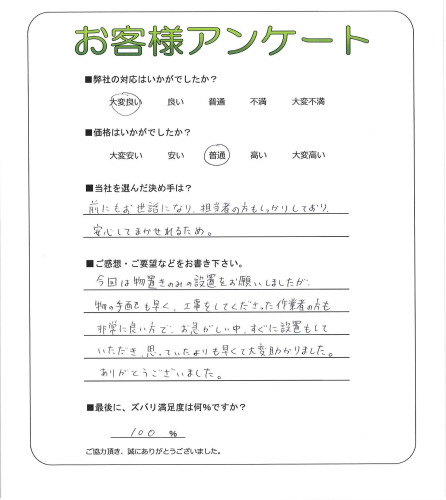 お客様アンケート
■弊社の対応はいかがでしたか？
大変良い 良い 普通 不満 大変不満
■価格はいかがでしたか？
大変安い 安い 普通 高い 大変高い
■当社を選んだ決め手は？
前にもお世話になり、担当者の方もしっかりしており、
安心してまかせれるため。
■ご感想・ご要望などをお書き下さい。
今回は物置きのみの設置をお願いしましたが、
物の手配も早く、工事をしてくださった作業者の方も
非常に良い方で、お急がしい中、すぐに設置もして
いただき、思っていたよりも早くて大変助かりました。
ありがとうございました。
■最後に、ズバリ満足度は何％ですか？
100 ％
ご協力頂き、誠にありがとうございました。